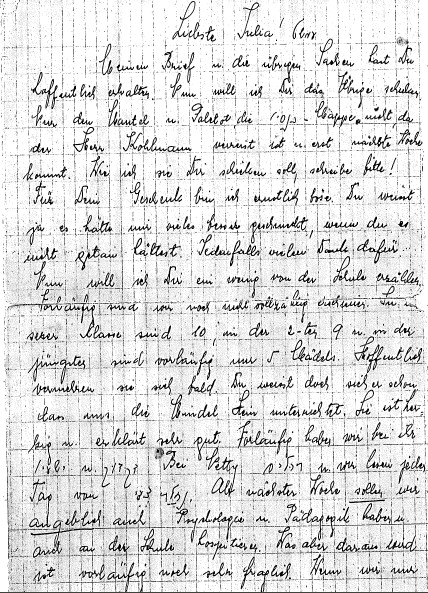 Liebste Julia!
Meinen Brief u. die übrigen Sachen hast Du
hoffentlich erhalten. Nun will ich Dir das Übrige schicken.
Nur den Mantel u. Paletot, die - Mappe nicht da
der Herr Kohlmann verreist ist u. erst nächste Woche
kommt. Wie ich sie Dir schicken soll, schreibe bitte!
Für Dein Geschenk bin ich ernstlich böse. Du weisst
ja es hätte mir vieles besser geschmeckt, wenn du es
nicht getan hättest. Jedenfalls vielen Dank dafür.
Nun will ich Dir ein wenig von der Schule erzählen.
Vorläufig sind wir noch nicht vollzählig In un-
serer Klasse sind 10, in der 2-ten 9 u. in der
jüngsten sind vorläufig nur 5 Mädels. Hoffentlich
vermehren sie sich bald. Du weisst doch sicher schon
dass uns die Mandel unterrichtet. Sie ist
u. erklärt sehr gut. Vorläufig haben wir bei ihr
u. Bei Betty u. wir lesen jeden
Tag von Ab nächster Woche sollen wir
angeblich auch Psychologie u. Pädagogik haben u.
auch an der Schule hospitieren. Was aber daraus wird
ist vorläufig noch sehr fraglich. Wenn wir nur